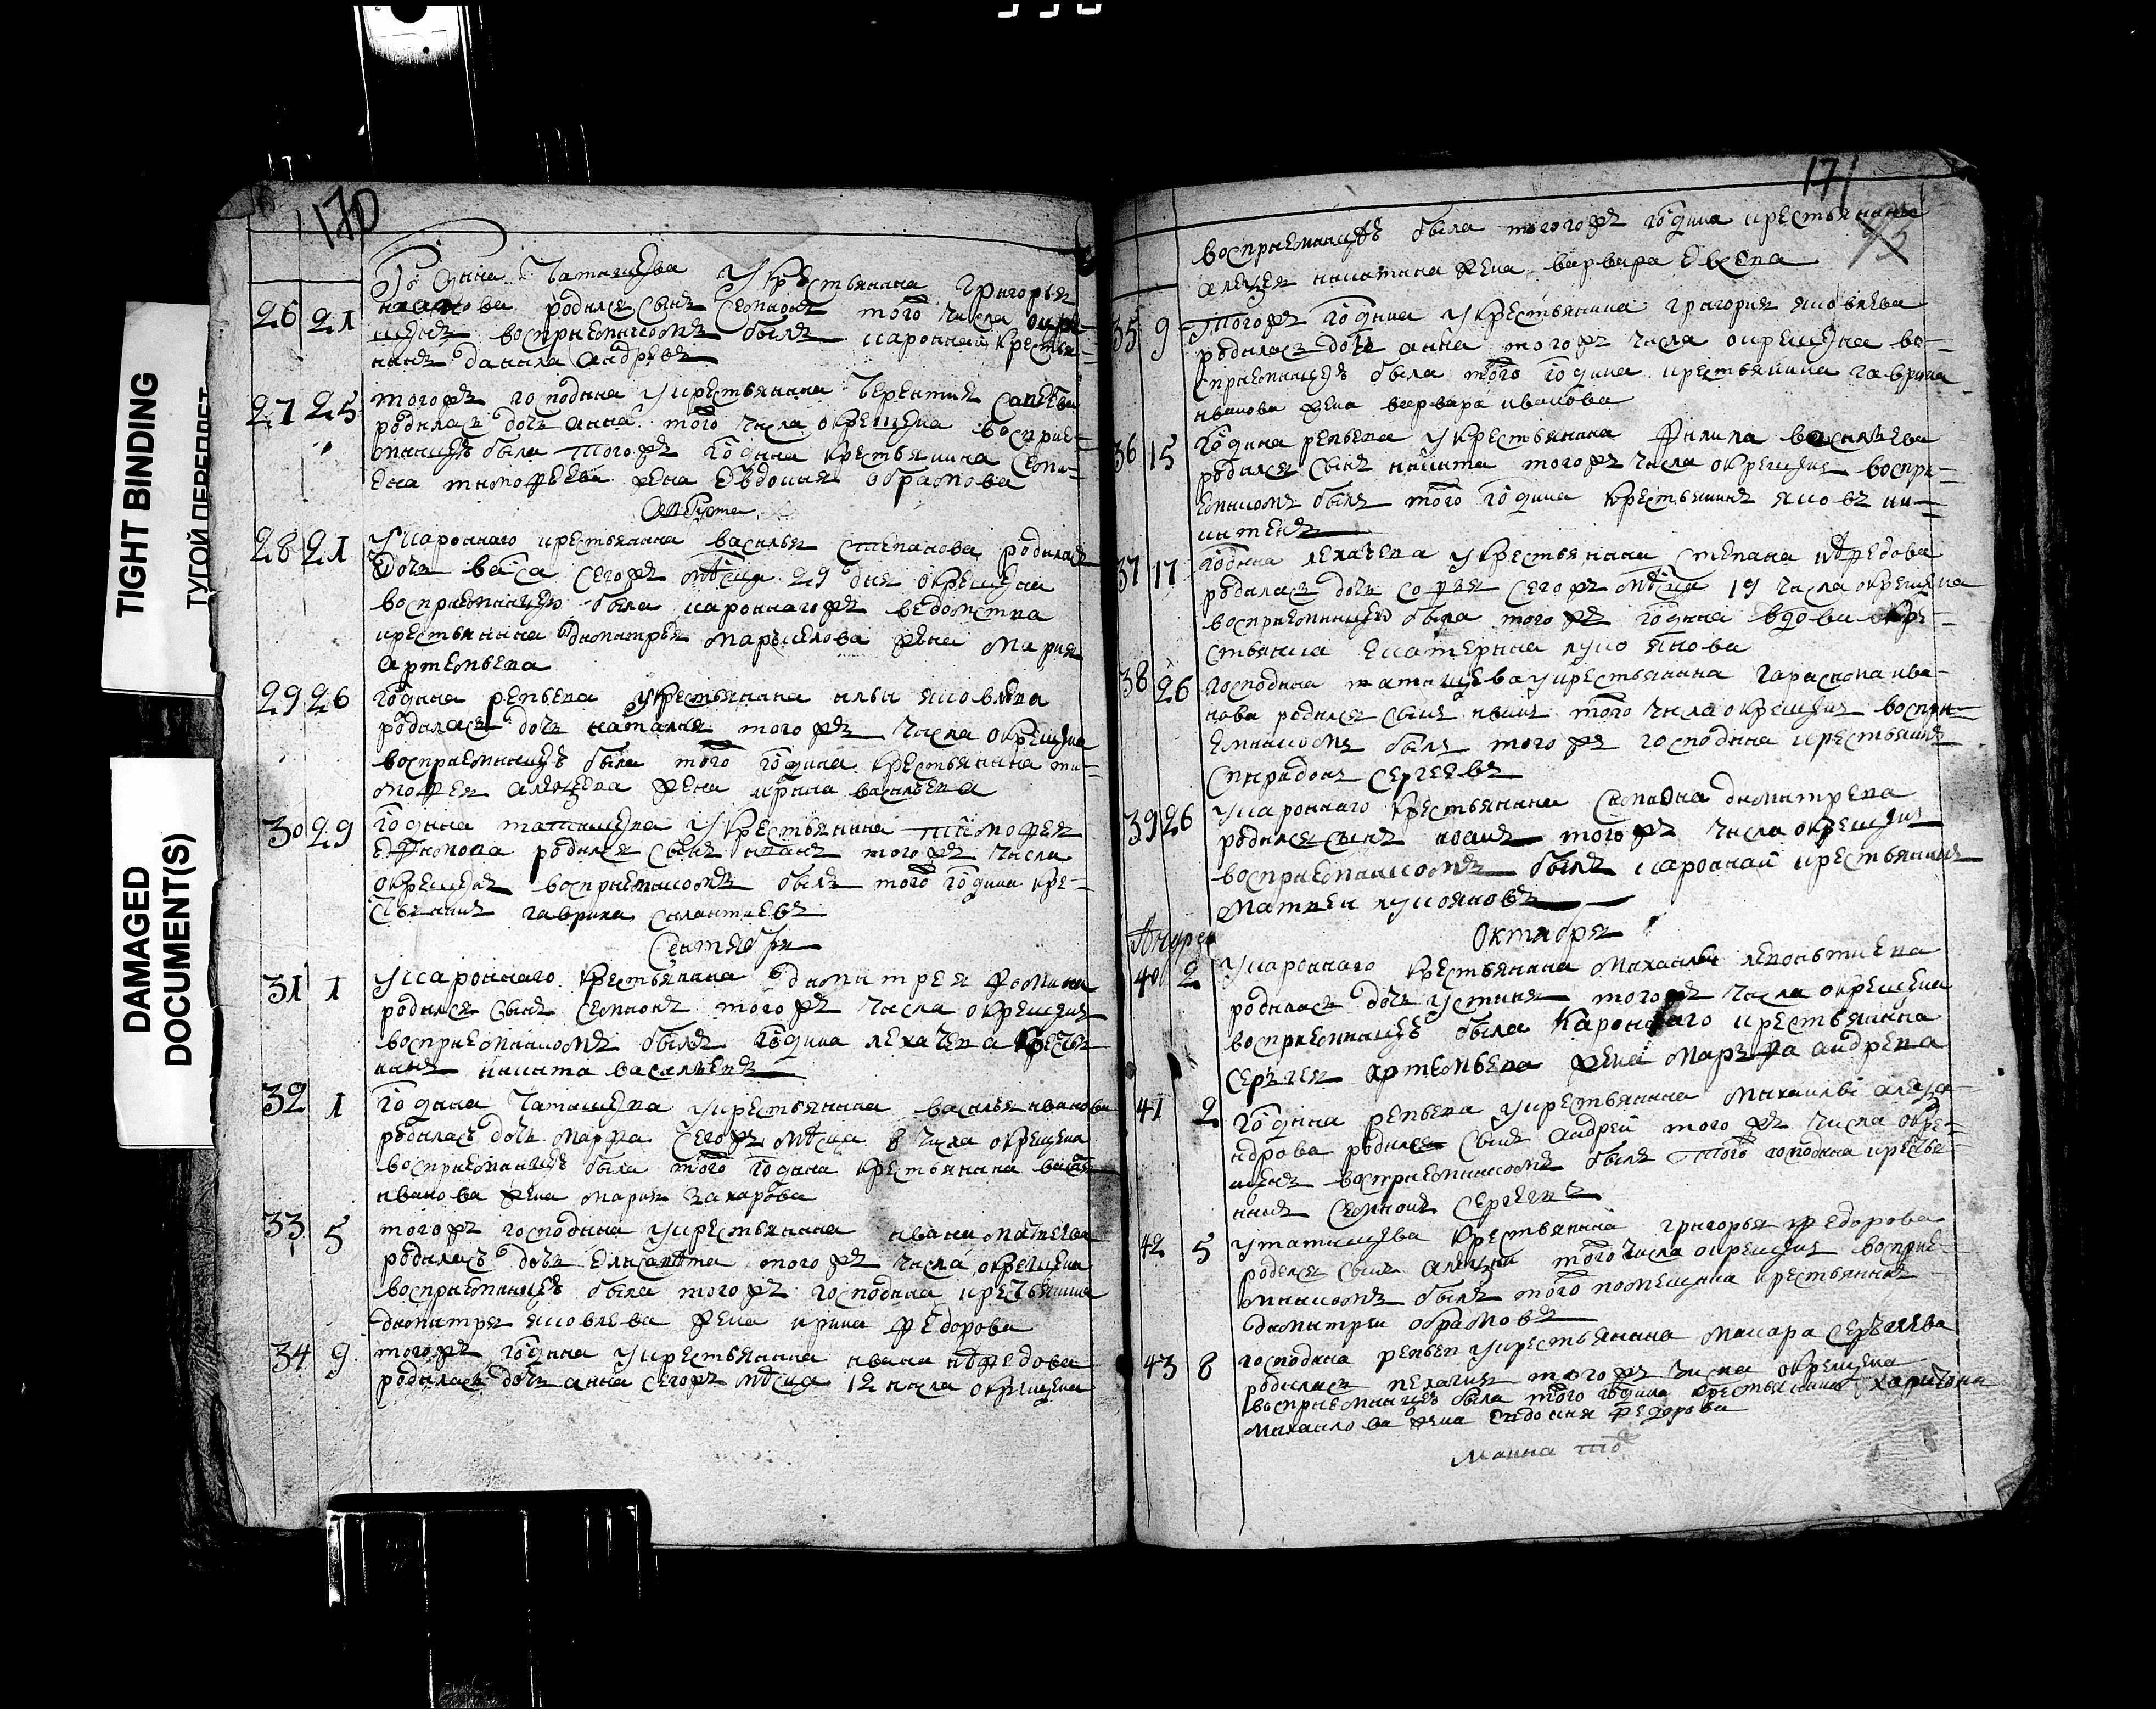 TIGHT BINDING
ТУГОЙ ПЕРЕПЛЕТ
DAMAGED
DOCUMENT(S)
170
Го҃дина Татищева у крестьянина григорья
26 21 родился сынъ семионъ того числа окре-
щенъ восприемникомъ былъ каронной крестья-
нинъ данила андреевъ
27 25 тогожъ господина у крестьянина терентия савева
родилась дочь анна того числа окрещена восприе-
мницею была тогожъ го҃дина крестьянина семи-
ена тимофеева жена евдокия абрамова
августа
28 21 у каронного крестьянина василья степанова родилась
дочь васа сегожъ мѣсяца 29 дня окрещена
восприемницею была каронногожъ ведомства
крестьянина дмитрея жена мария
артемьева
29 26 го҃дина репьева у крестьянина ильи яковлева
родилась дочь наталия тогожъ числа окрещена
восприемницею была того го҃дина крестьянина ти-
мофея алексеева жена ирина васильева
30 29 го҃дина татищева у крестьянина тимофея
родился сынъ иванъ тогожъ числа
окрещенъ восприемникомъ былъ того го҃дина кре-
стьянинъ гаврила силантиевъ
сентября
31 1 у каронного крестьянина димитрея фомина
родился сынъ семионъ тогожъ числа окрещенъ
восприемникомъ былъ го҃дина лехачева крестья-
нинъ никита васильевъ
32 1 го҃дина татищева у крестьянина василья иванова
родилась дочь марфа сегожъ мѣсяца 8 числа окрещена
восприемницею была того го҃дина крестьянина
иванова жена мария захарова
33 5 тогожъ господина у крестьянина ивана матвеева
родилась дочь елисавета тогожъ числа окрещена
восприемницею была тогожъ господина крестьянина
димитрея яковлева жена ирина федорова
34 9 тогожъ го҃дина у крестьянина ивана нефедова
родилась дочь анна сегожъ мѣсяца 12 числа окрещена
171
восприемницею была тогожъ го҃дина крестьянина
алексея никитина жена варвара
35 9 тогожъ го҃дина у крестьянина григория яковлева
родилась дочь анна тогожъ числа окрещена во-
сприемницею была того го҃дина крестьянина гаврила
иванова жена варвара иванова
36 15 го҃дина репьева у крестьянина филипа васильева
родился сынъ никита тогожъ числа окрещенъ воспри-
емникомъ былъ того го҃дина крестьянинъ яковъ ни-
китинъ
37 17 го҃дина лехачева у крестьянина степана нефедова
родилась дочь софья сегожъ мѣсяца 19 числа окрещена
восприемницею была тогожъ го҃дина вдова кре-
стьянка екатерина лукоянова
38 26 господина татищева у крестьянина гарасима ива-
нова родился сынъ иванъ того числа окрещенъ воспри-
емникомъ былъ тогожъ господина крестьянинъ
спиридонъ сергеевъ
39 26 у каронного крестьянина семиона димитрева
родился сынъ иванъ тогожъ числа окрещенъ
восприемникомъ былъ каронной крестьянинъ
матвеи лукояновъ
Андрей
октября
40 2 у каронного крестьянина михаилы леонтиева
родилась дочь устиния тогожъ числа окрещена
восприемницею была каронного крестьянина
сергея артемьева жена марфа андреева
41 2 го҃дина репьева у крестьянина михаилы алекса-
ндрова родился сынъ андрей тогожъ числа окре-
щенъ восприемникомъ былъ того господина крестья-
нинъ семионъ сергеевъ
42 5 у татищева крестьянина григорья федорова
родился сынъ алексеи того числа окрещенъ восприе-
мникомъ былъ того помещика крестьянинъ
димитреи абрамовъ
43 8 господина репьева у крестьянина макара сергеева
родилась пелагия тогожъ числа окрещена
восприемницею была того го҃дина крестьянина харитона
михаилова жена евдокия федорова